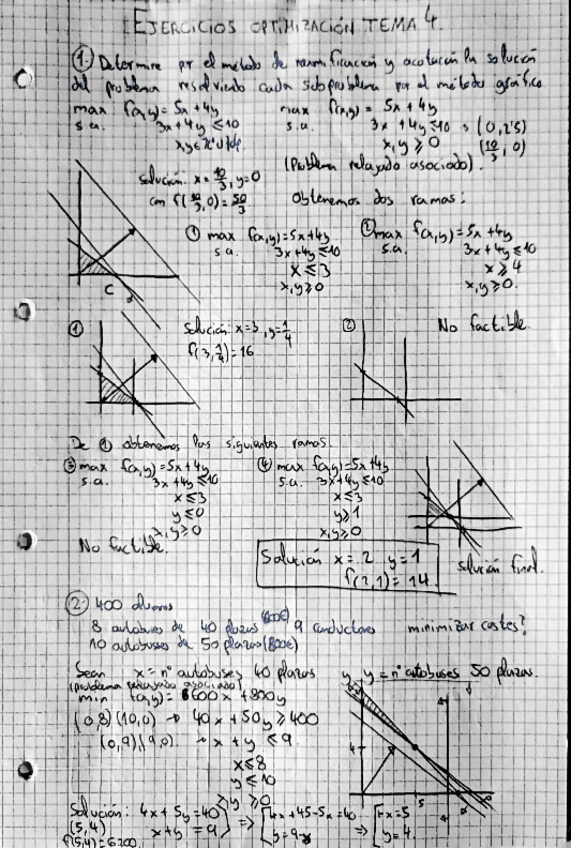 EJERCICIOS OPTIMIZACIÓN TEMA 4.
① Determine por el método de ramificación y acotación la solución
del problema resolviendo cada subproblema por el método gráfico
max f(x,y) = 5x + 4y
s.a. 3x + 4y ≤ 10
max f(x,y) = 5x + 4y
s.a. 3x + 4y ≤ 10 → (0, 2'5)
x, y ≥ 0 (10/3, 0)
(Problema relajado asociado).
Solución: x = 10/3, y = 0
con f(10/3, 0) = 50/3
Obtenemos dos ramas:
① max f(x,y) = 5x + 4y
s.a. 3x + 4y ≤ 10
x ≤ 3
x, y ≥ 0
② max f(x,y) = 5x + 4y
s.a. 3x + 4y ≤ 10
x ≥ 4
x, y ≥ 0.
C 3
①
Solución: x = 3, y = 1/4
f(3, 1/4) = 16
②
No factible.
De ① obtenemos las siguientes ramas.
③ max f(x,y) = 5x + 4y
s.a. 3x + 4y ≤ 10
x ≤ 3
y ≤ 0
x, y ≥ 0
No factible.
④ max f(x,y) = 5x + 4y
s.a. 3x + 4y ≤ 10
x ≤ 3
y ≥ 1
x, y ≥ 0
Solución x = 2, y = 1
f(2,1) = 14.
solución final.
② 400 alumnos
8 autobuses de 40 plazas (600€) 9 conductores minimizar costes?
10 autobuses de 50 plazas (800€)
Sean x = nº autobuses 40 plazas y, y = nº autobuses 50 plazas.
(problema relajado asociado)
min f(x,y) = 600x + 800y
(0,8) (10,0) → 40x + 50y ≥ 400
(0,9) (9,0) → x + y ≤ 9
x ≤ 8
y ≤ 10
x, y ≥ 0
4
5
Solución: 4x + 5y = 40
x + y = 9
⇒ 4x + 45 - 5x = 40
y = 9 - x
⇒ x = 5
y = 4.
(5,4)
f(5,4) = 6200.